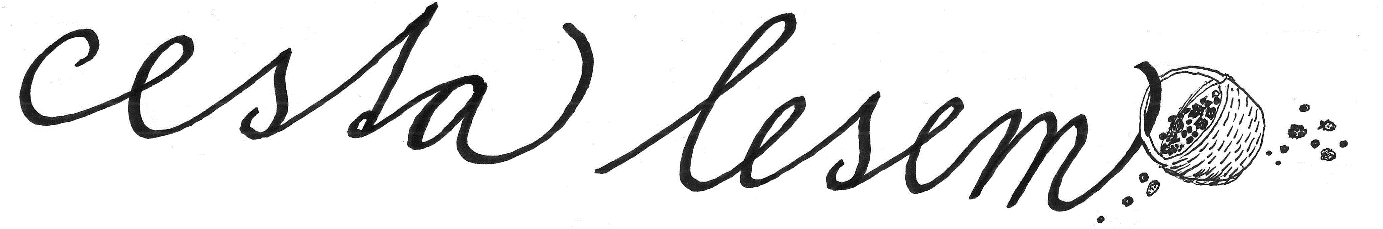 cesta lesem